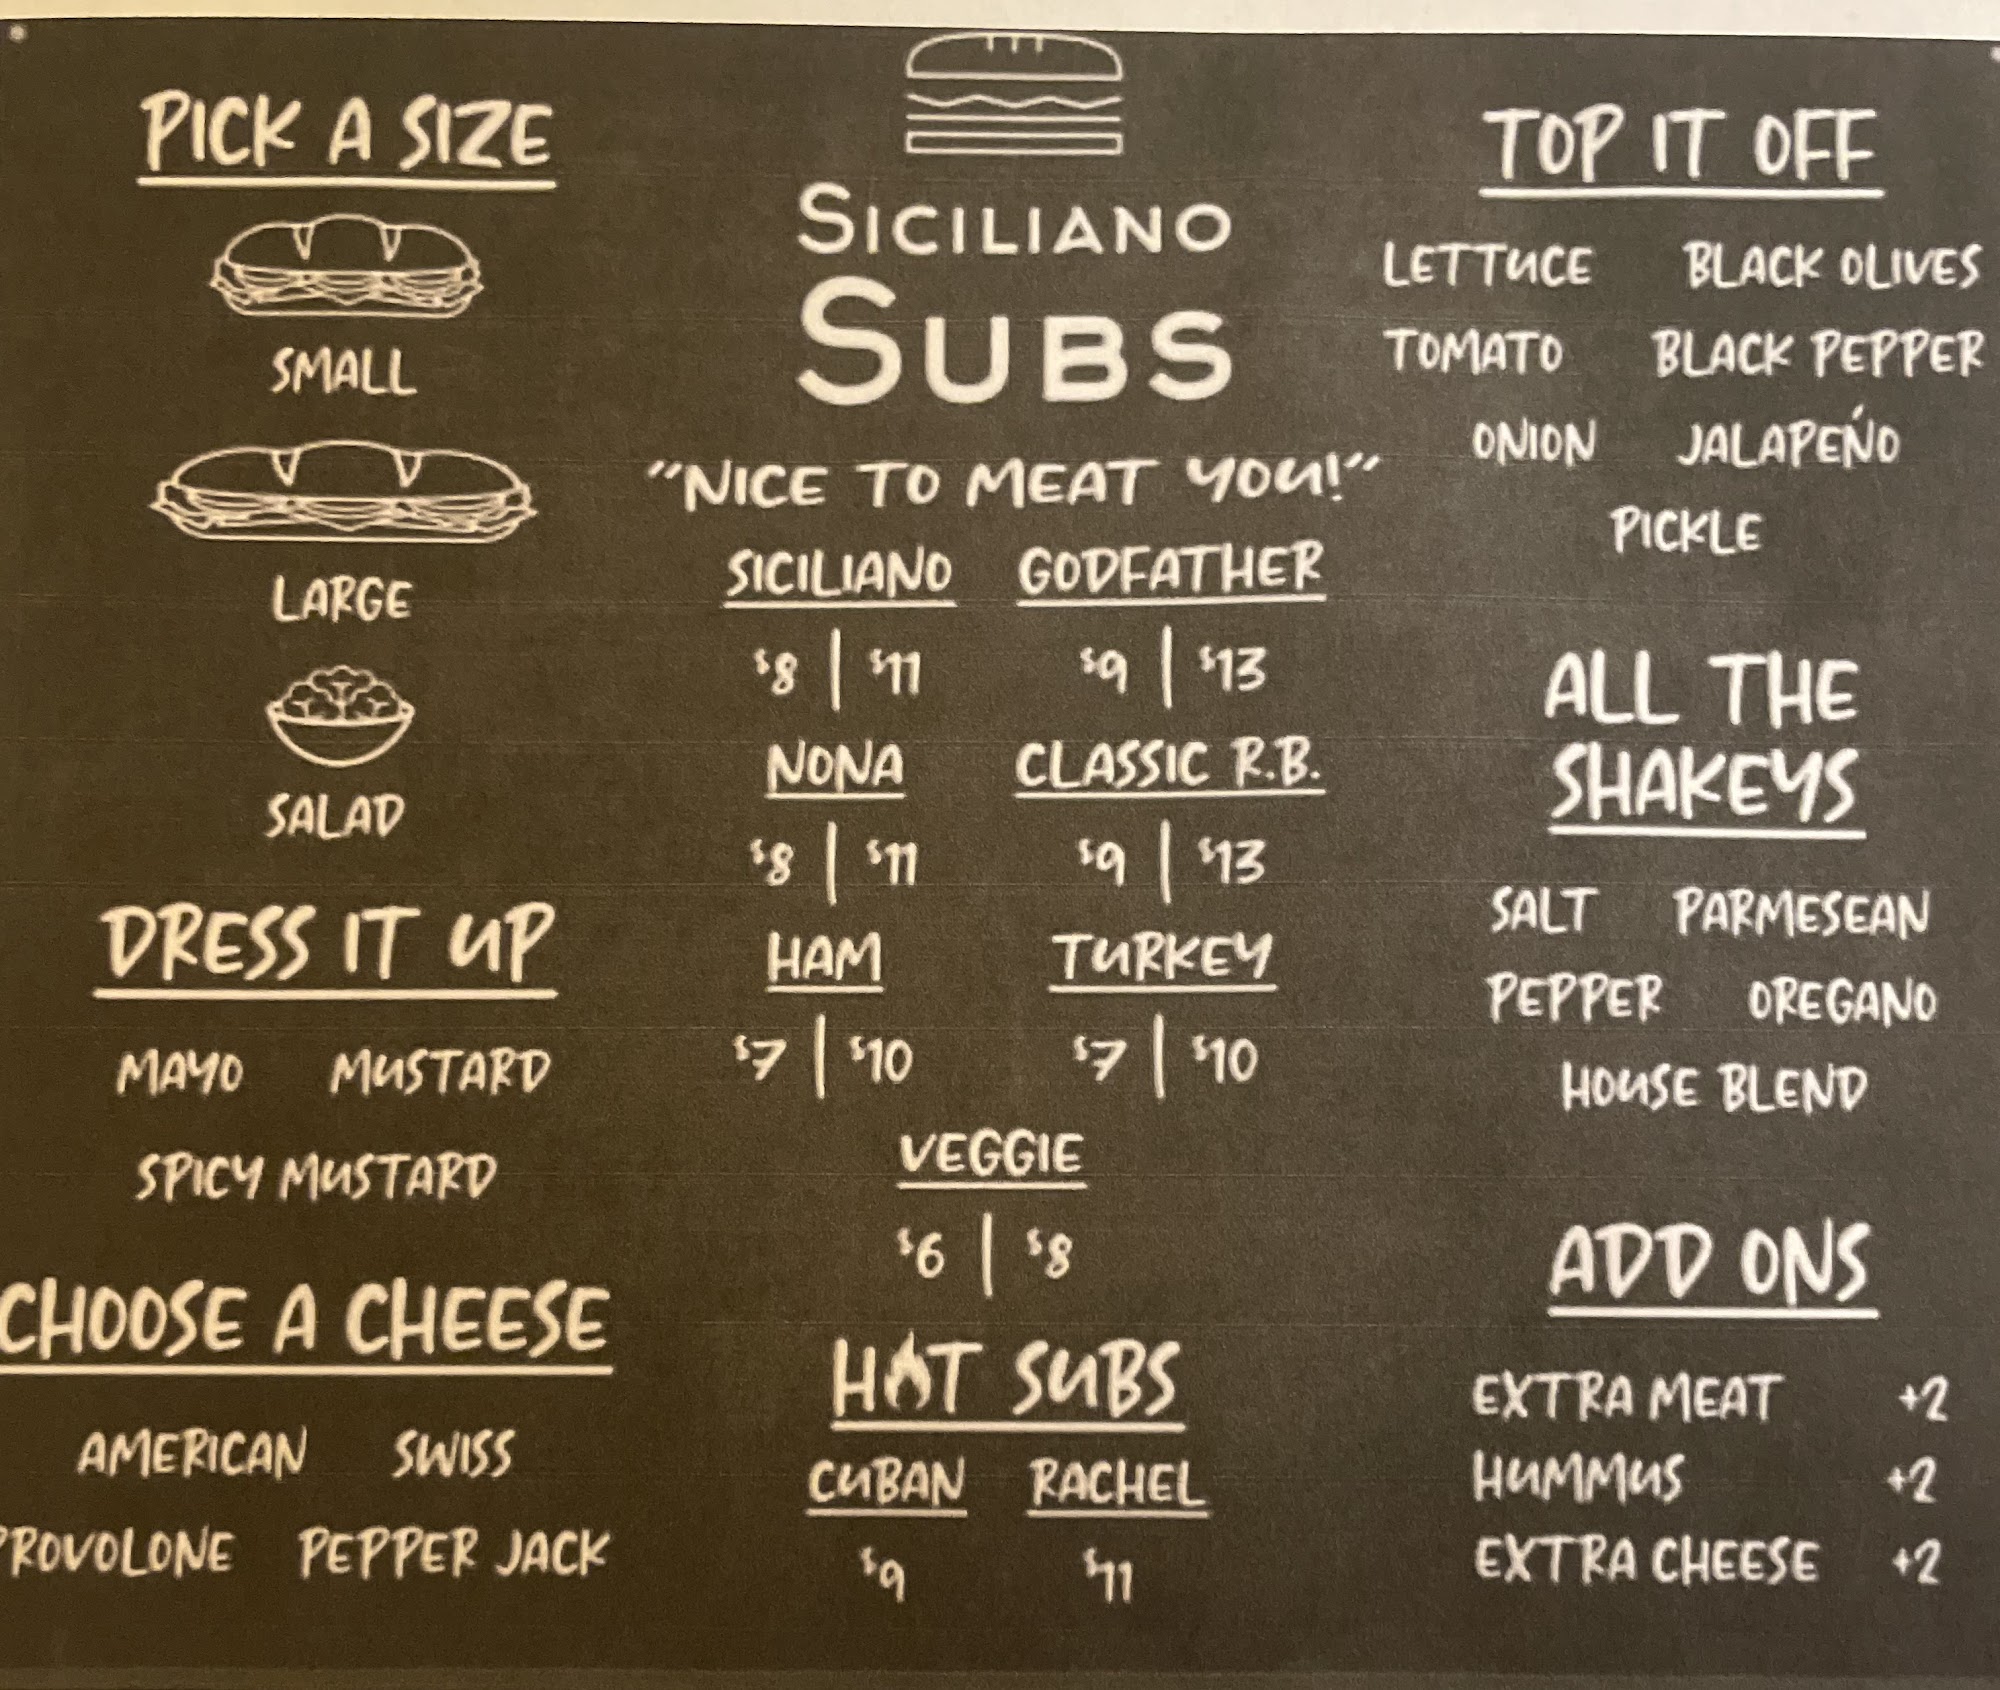 PICK A SIZE
SMALL
LARGE
SALAD
DRESS IT UP
MAYO MUSTARD
SPICY MUSTARD
CHOOSE A CHEESE
AMERICAN SWISS
PROVOLONE PEPPER JACK
SICILIANO
SUBS
"NICE TO MEAT YOU!"
SICILIANO GODFATHER
$8 | $11 $9 | $13
NONA CLASSIC R.B.
$8 | $11 $9 | $13
HAM TURKEY
$7 | $10 $7 | $10
VEGGIE
$6 | $8
HOT SUBS
CUBAN RACHEL
$9 $11
TOP IT OFF
LETTUCE BLACK OLIVES
TOMATO BLACK PEPPER
ONION JALAPEŃO
PICKLE
ALL THE
SHAKEYS
SALT PARMESEAN
PEPPER OREGANO
HOUSE BLEND
ADD ONS
EXTRA MEAT +2
HUMMUS +2
EXTRA CHEESE +2